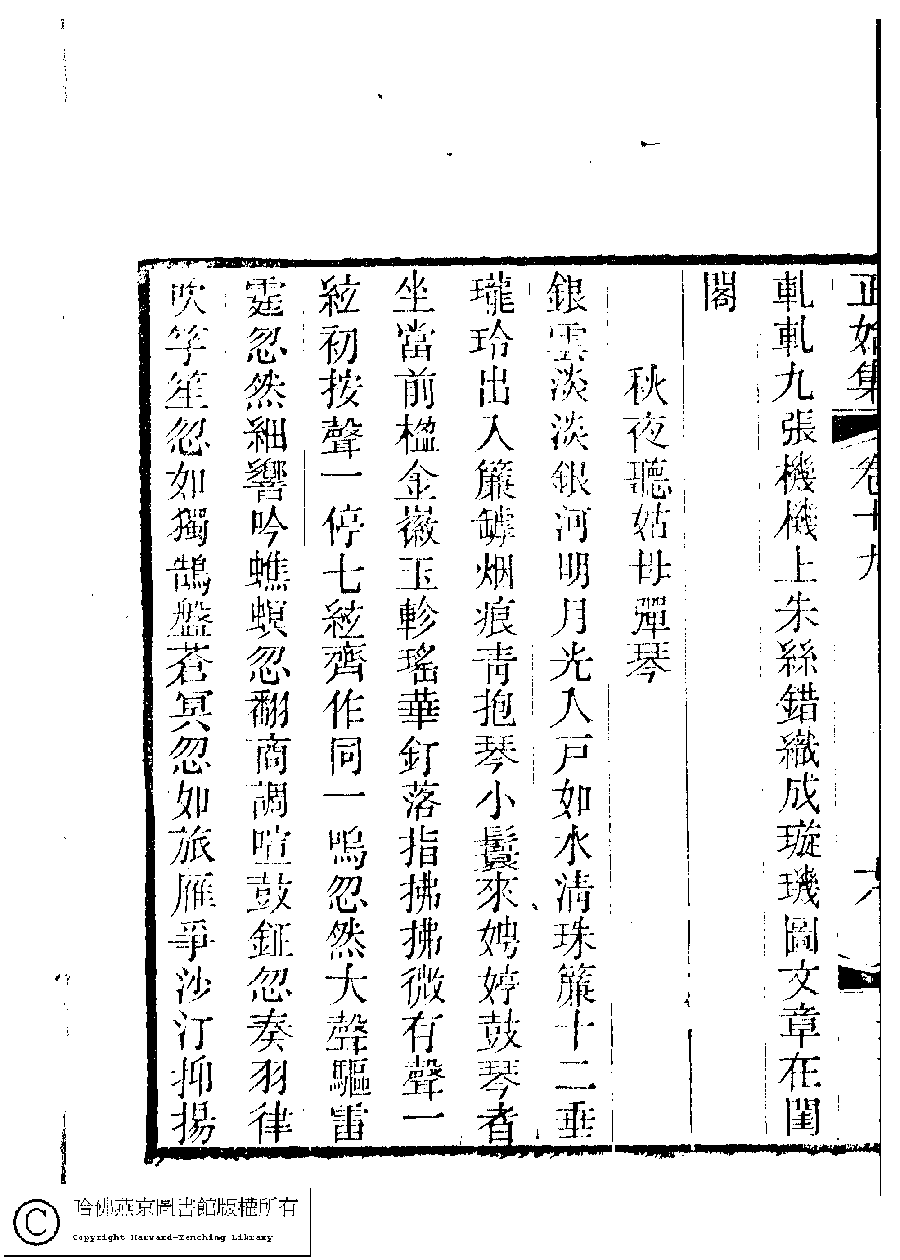 正始集 卷十九 六
軋軋九張機機上朱絲錯織成璇璣圖文章在閨
閣
秋夜聽姑母彈琴
銀雲淡淡銀河明月光入戸如水淸珠簾十二垂
瓏玲出入簾罅烟痕靑抱琴小鬟來娉婷鼓琴者
坐當前楹金徽玉軫瑤華釘落指拂拂微有聲一
絃初按聲一停七絃齊作同一鳴忽然大聲驅雷
霆忽然細響吟蟭螟忽翻商調喧鼓鉦忽奏羽律
吹竽笙忽如獨鵠盤蒼冥忽如旅雁爭沙汀抑揚
哈佛燕京圖書館版權所有
Copyright Harvard-Yenching Library